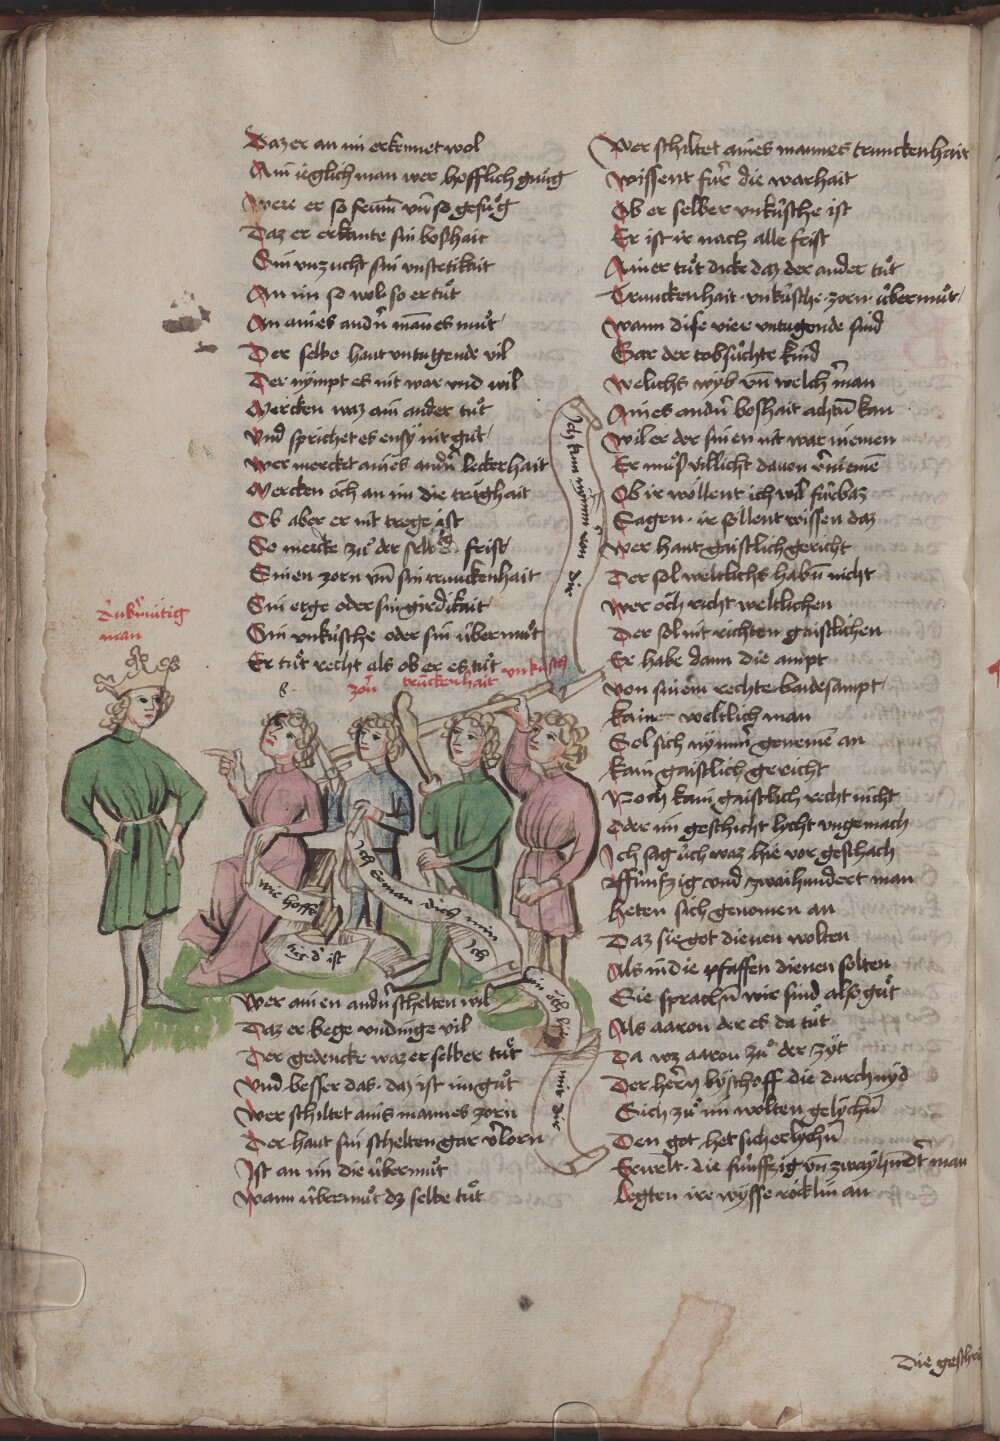 Daz er an im erkennet wol
Ain ieglich man wer hofflich gnuͦg
Were er so frum vn̄ so gefuͦg
Daz er erkante sin boßhait
Sin vnzucht sin vnstetikait
An im so wol so er tuͦt
An aines andn̄ mānes muͦt
Der selbe haut vntugende vil
Der nÿmpt es nit war vnd wil
Mercken waz ain ander tuͦt
Vnd sprichet es ensÿ nit guͦt
Wer mercket aines andn̄ leckerhait
Mercken och an im die trăghait
Ob aber er nit trege ist
So mercke zuͦ der selbē frist
Sinen zorn vn̄ sin trunckenhait
Sin erge oder sin girdikait
Sin vnkúsche oder sin úbermuͦt
Er tuͦt recht als ob er es tuͦt
Dúbˀmútig
man
zorn
trūckenhait
vnkúsch
Ich kum nÿmm̄ von dir
wie hoffˀ
hie dˀ ist
Ich erman dich min
Ich
bin och hie
mit dir
Wer ainen andn̄ schelten wil
Daz er bege vndinge vil
Der gedencke waz er selber tuͦt
Vnd besser das · daz ist im guͦt
Wer schiltet ains mannes zorn
Der haut sin schelten gar v̄lorn
Ist an im die úbermuͦt
Wann úbermuͦt dz selbe tuͦt
Wer schiltet aines mannes trunckenhait
Wissent fúr die warhait
Ob er selber vnkúsche ist
Er ist ir nach alle frist
Ainer tuͦt dicke daz der ander tuͦt
Trunckenhait · vnkúsche · zorn · úbermuͦt
Wann dise vier vntugende sind
Gar der tobsúchte kind
Welichs wÿb vn̄ welchˀ man
Aines andn̄ boßhait achtn̄ kan
Wil er der sinen nit war niemen
Er muͦß villicht dauon v̄niemē
Ob ir wöllent ich wil fúrbaz
Sagen · ir söllent wissen daz
Wer haut gaistlich gericht
Der sol weltlichs habn̄ nicht
Wer och richt weltlichen
Der sol nit richten gaistlichen
Er habe dann die ampt
Von sinem rechte baidesampt
Kainer weltlich man
Sol sich nÿmmˀ genemē an
Kain gaistlich gericht
Noch kain gaistlich recht nicht
Oder im geschicht licht vngemach
Ich sag úch waz hie vor geschach
Ffúnfzig vnd zwaihundert man
Heten sich genomen an
Daz sie got dienen wolten
Als in die pfaffen dienen solten
Sie sprachn̄ wir sind als guͦt
Als aaron der es da tuͦt
Da wz aaron zuͦ der zÿt
Der herˀn bÿschoff die durch nÿd
Sich zuͦ im wolten gelÿchn̄
Den got het sicherlychn̄
Erwelt · die fúnffzig vn̄ zwaÿhundˀt man
Legten ire wÿsse röcklin an
Die geschri